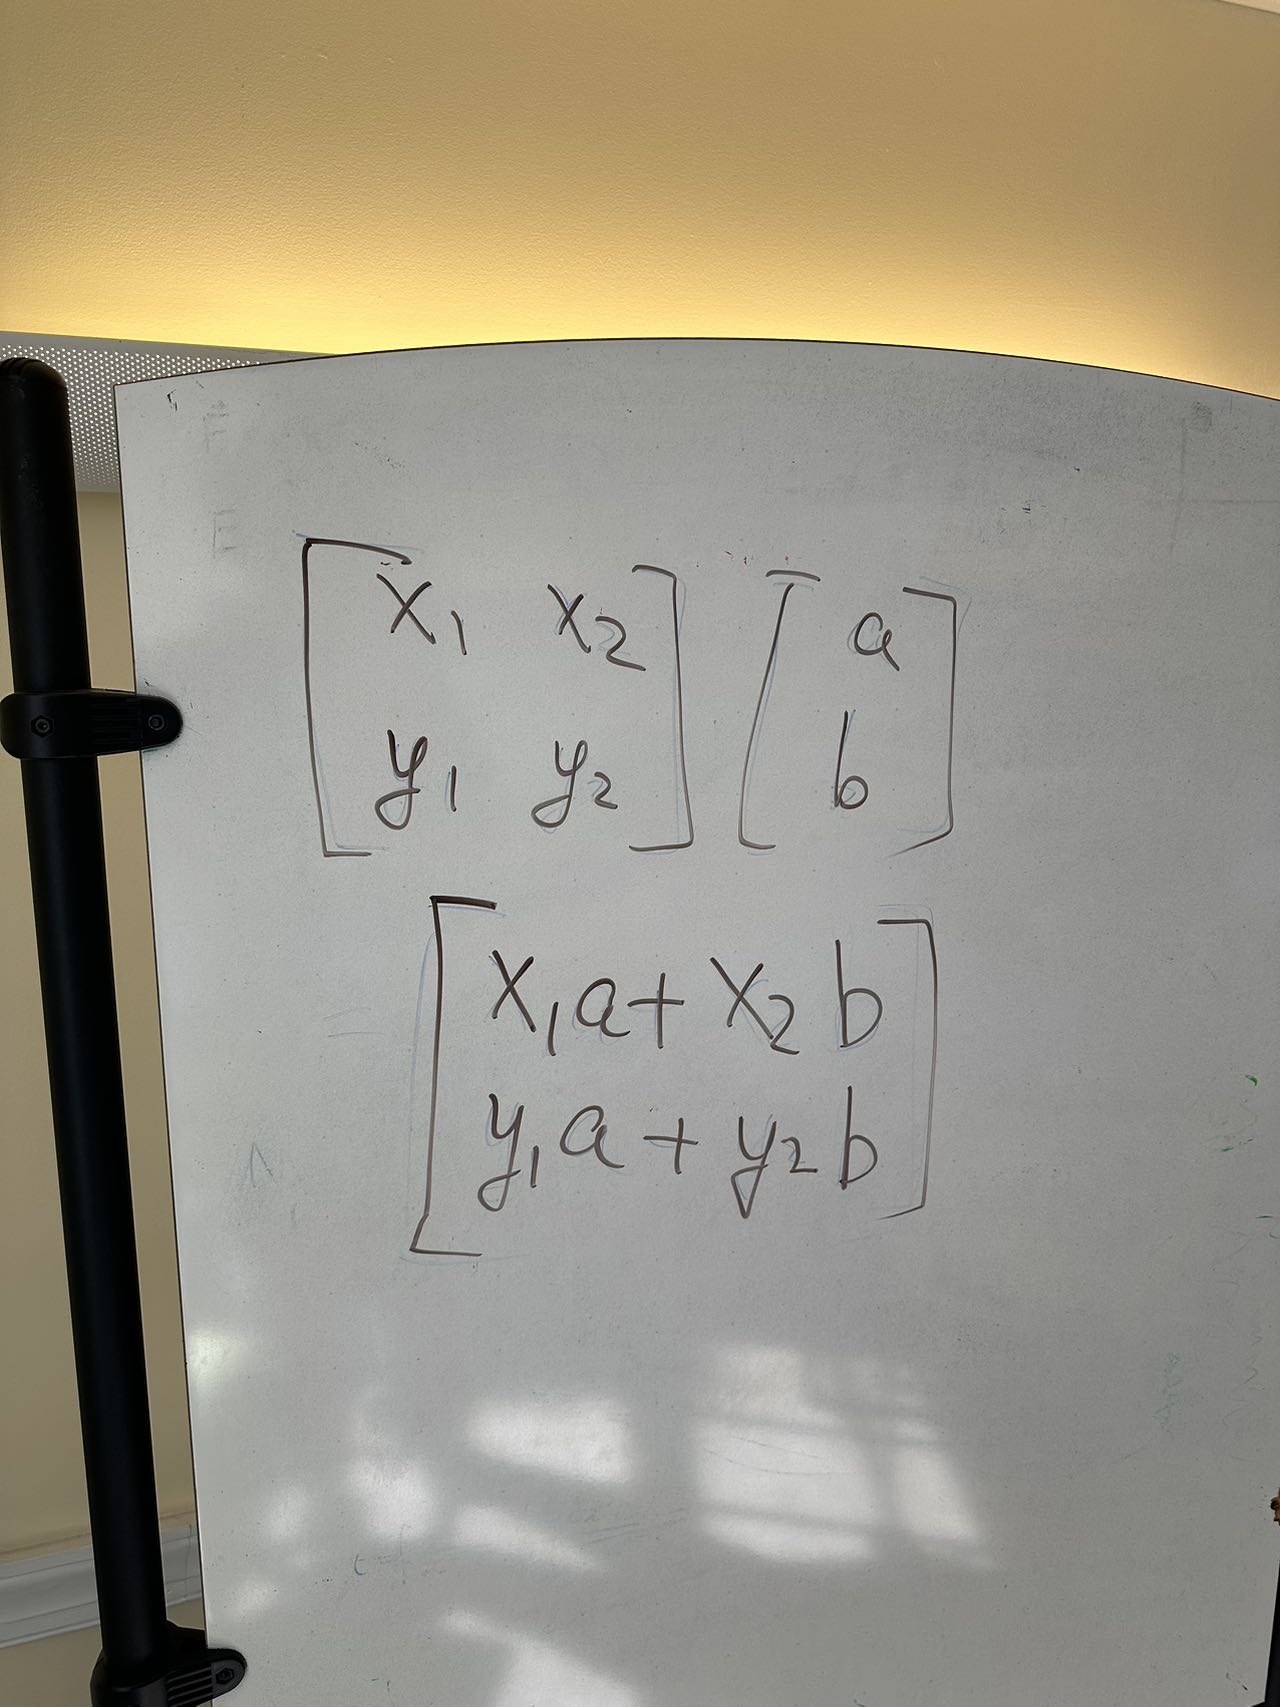 [x₁ x₂] [a]
[y₁ y₂] [b]
[x₁a + x₂b]
[y₁a + y₂b]